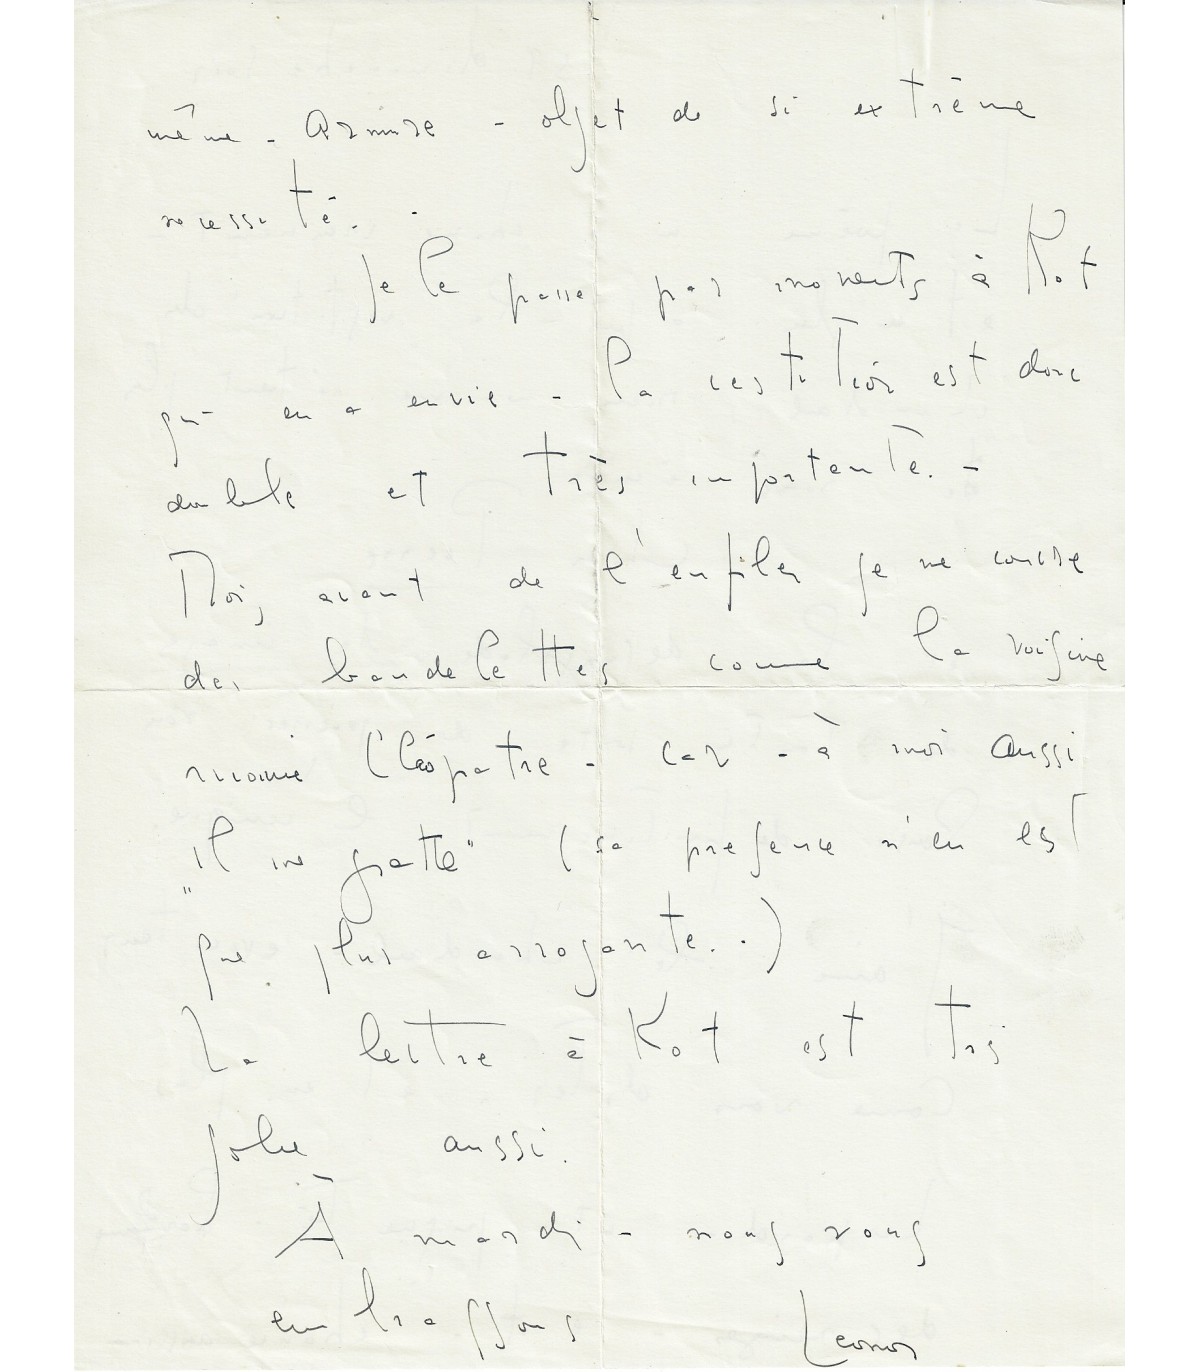 même - armure - objet de si extrême
necessité.
Je le passe par moments à Kot
qui en a envie - la restitution est donc
double et très importante. -
Moi, avant de l'enfiler je me couvre
des bandelettes comme la voisine
momie Cléopatre - car - à moi aussi
"il me gratte" (sa presence n'en est
que plus arrogante..)
La lettre à Kot est très
jolie aussi.
À mardi - nous vous
embrassons Leonor